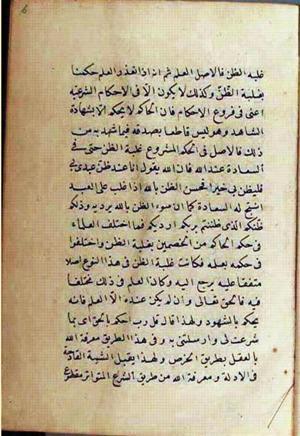 غلبه الظن فالاصل العلم ثم انه اذا تعذر العلم حكمنا
بغلبة الظن وكذلك لا يكون الا في الاحكام الشرعيه
اعنى فى فروع الاحكام فان الحاكم لا يحكم الا بشهادة
الشاهد وهو ليس قاطعا بصدقه فيما شهد به من
ذلك فالاصل فى الحكم المشروع غلبة الظن حتى فى
السعادة عند الله فان الله يقول انا عند ظن عبدى بى
فليظن بى خيرا فحسن الظن بالله اذا غلب على العبد
انتج له السعادة كما ان سوء الظن بالله يرديه وذلكم
ظنكم الذى ظننتم بربكم ارديكم فما اختلف العلماء
فى حكم الحاكم من الخصمين بغلبة الظن واختلفوا
فى حكمه بعلمه فكانت غلبة الظن فى هذا النوع اصلا
متفقا عليه يرجع اليه وكان العلم فى ذلك مختلفا
فيه فالحق تعالى وان لم يكن عنده الا العلم فانه
يحكم بالشهود ولهذا قال قل رب احكم بالحق اى بما
شرعت لى وارسلتنى به وفى هذا الطريق معرفة الله
بالعقل بطريق الخرص ولهذا يقبل الشبهة القادحة
فى الادلة ومعرفة الله من طريق الشرع المتواتر مقطوع